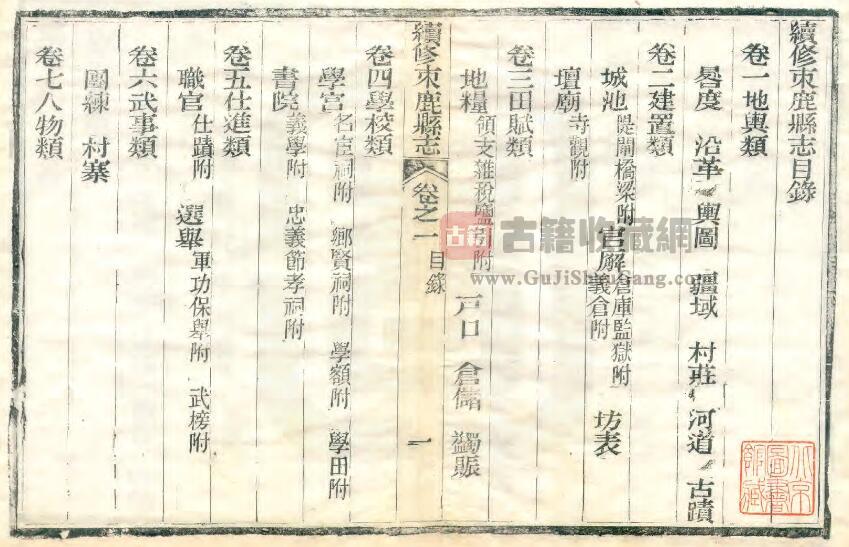 續修束鹿縣志目錄
卷一地輿類
晷度 沿革 輿圖 疆域 村莊 河道 古蹟
卷二建置類
城池 隄閘橋梁附 官廨 倉庫監獄附 義倉附 坊表
壇廟 寺觀附
卷三田賦類
地糧 領支雜稅鹽引附 戸口 倉儲 蠲賑
續修束鹿縣志 卷之一 目錄 一
卷四學校類
學宮 名宦祠附 鄉賢祠附 學額附 學田附
書院 義學附 忠義節孝祠附
卷五仕進類
職官 仕蹟附 選舉 軍功保舉附 武榜附
卷六武事類
團練 村寨
卷七人物類
古籍 古籍收藏網
www.GuJiShouCang.com
北京圖書館藏